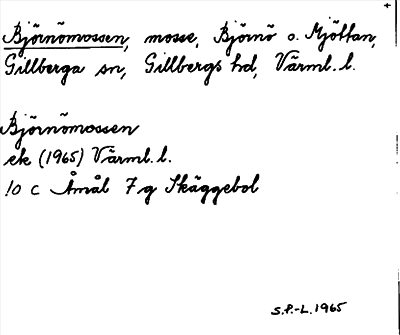 Björnömossen, mosse, Björnö o. Mjöttan,
Gillberga sn, Gillbergs hd, Värml. l.
Björnömossen
ek (1965) Värml. l.
10 c Åmål 7 g Skäggebol
S.P.-L. 1965